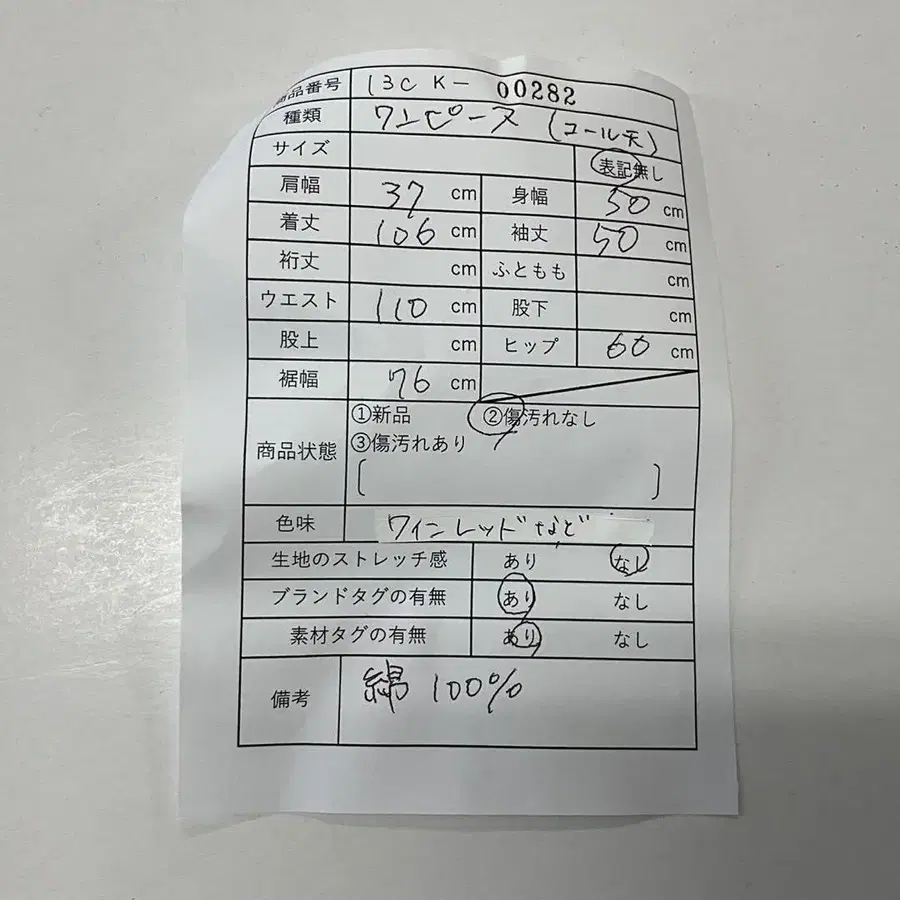 商品番号 13C K- 00282
種類 ワンピース (コール天)
サイズ 表記無し
肩幅 37 cm 身幅 50 cm
着丈 106 cm 袖丈 50 cm
裄丈 cm ふともも cm
ウエスト 110 cm 股下 cm
股上 cm ヒップ 60 cm
裾幅 76 cm
①新品 ②傷汚れなし
商品状態 ③傷汚れあり
[ ]
色味 ワインレッドなど
生地のストレッチ感 あり なし
ブランドタグの有無 あり なし
素材タグの有無 あり なし
備考 綿 100%